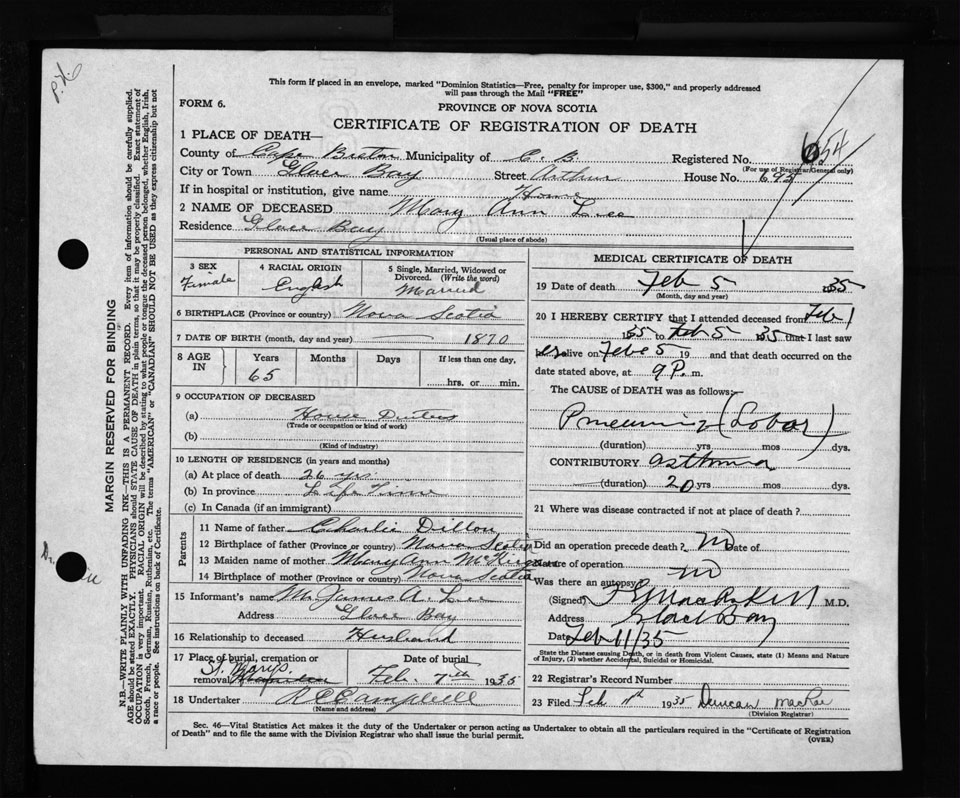 This form if placed in an envelope, marked "Dominion Statistics—Free, penalty for improper use, $300," and properly addressed
will pass through the Mail "FREE"
FORM 6.
PROVINCE OF NOVA SCOTIA
CERTIFICATE OF REGISTRATION OF DEATH
1 PLACE OF DEATH—
County of Cape Breton Municipality of C. B. Registered No. 654
(For use of Registrar General only)
City or Town Glace Bay Street Arthur House No. 695
If in hospital or institution, give name Home
2 NAME OF DECEASED Mary Ann Lee
Residence Glace Bay
(Usual place of abode)
PERSONAL AND STATISTICAL INFORMATION
3 SEX Female
4 RACIAL ORIGIN English
5 Single, Married, Widowed or Divorced. (Write the word) Married
6 BIRTHPLACE (Province or country) Nova Scotia
7 DATE OF BIRTH (month, day and year) — 1870
8 AGE IN Years Months Days If less than one day,
65 hrs. or min.
9 OCCUPATION OF DECEASED
(a) House Duties
(Trade or occupation or kind of work)
(b)
(Kind of industry)
10 LENGTH OF RESIDENCE (in years and months)
(a) At place of death 26 yrs.
(b) In province Life Time
(c) In Canada (if an immigrant)
Parents
11 Name of father Charlie Dillon
12 Birthplace of father (Province or country) Nova Scotia
13 Maiden name of mother Mary Ann
14 Birthplace of mother (Province or country) Nova Scotia
15 Informant's name Mr James A. Lee
Address Glace Bay
16 Relationship to deceased Husband
17 Place of burial, cremation or removal St. Marys Date of burial Feb. 7th 1935
18 Undertaker R C Campbell
(Name and address)
MEDICAL CERTIFICATE OF DEATH
19 Date of death Feb 5 35
(Month, day and year)
20 I HEREBY CERTIFY that I attended deceased from Feb 1
35 to Feb 5 35 that I last saw
her alive on Feb 5 19 and that death occurred on the
date stated above, at 9 P. m.
The CAUSE OF DEATH was as follows:
Pneumonia (Lobar)
(duration) yrs mos dys.
CONTRIBUTORY asthma
(duration) 20 yrs mos dys.
21 Where was disease contracted if not at place of death?
Did an operation precede death? no Date of
Nature of operation
Was there an autopsy no
(Signed) M.D.
Address Glace Bay
Date Feb 11/35
State the Disease causing Death, or in death from Violent Causes, state (1) Means and Nature
of Injury, (2) whether Accidental, Suicidal or Homicidal.
22 Registrar's Record Number
23 Filed Feb 1935 Duncan MacRae
(Division Registrar)
Sec. 46—Vital Statistics Act makes it the duty of the Undertaker or person acting as Undertaker to obtain all the particulars required in the "Certificate of Registration
of Death" and to file the same with the Division Registrar who shall issue the burial permit.
(OVER)
MARGIN RESERVED FOR BINDING
N.B.—WRITE PLAINLY WITH UNFADING INK—THIS IS A PERMANENT RECORD. Every item of information should be carefully supplied.
AGE should be stated EXACTLY. PHYSICIANS should STATE CAUSE OF DEATH in plain terms, so that it may be properly classified. Exact statement of
OCCUPATION is very important. RACIAL ORIGIN will be described by stating to what people or tongue the deceased person belonged, whether English, Irish,
Scotch, French, German, Russian, Ruthenian, etc. The terms "AMERICAN" or "CANADIAN" SHOULD NOT BE USED as they express citizenship but not
a race or people. See instructions on back of Certificate.